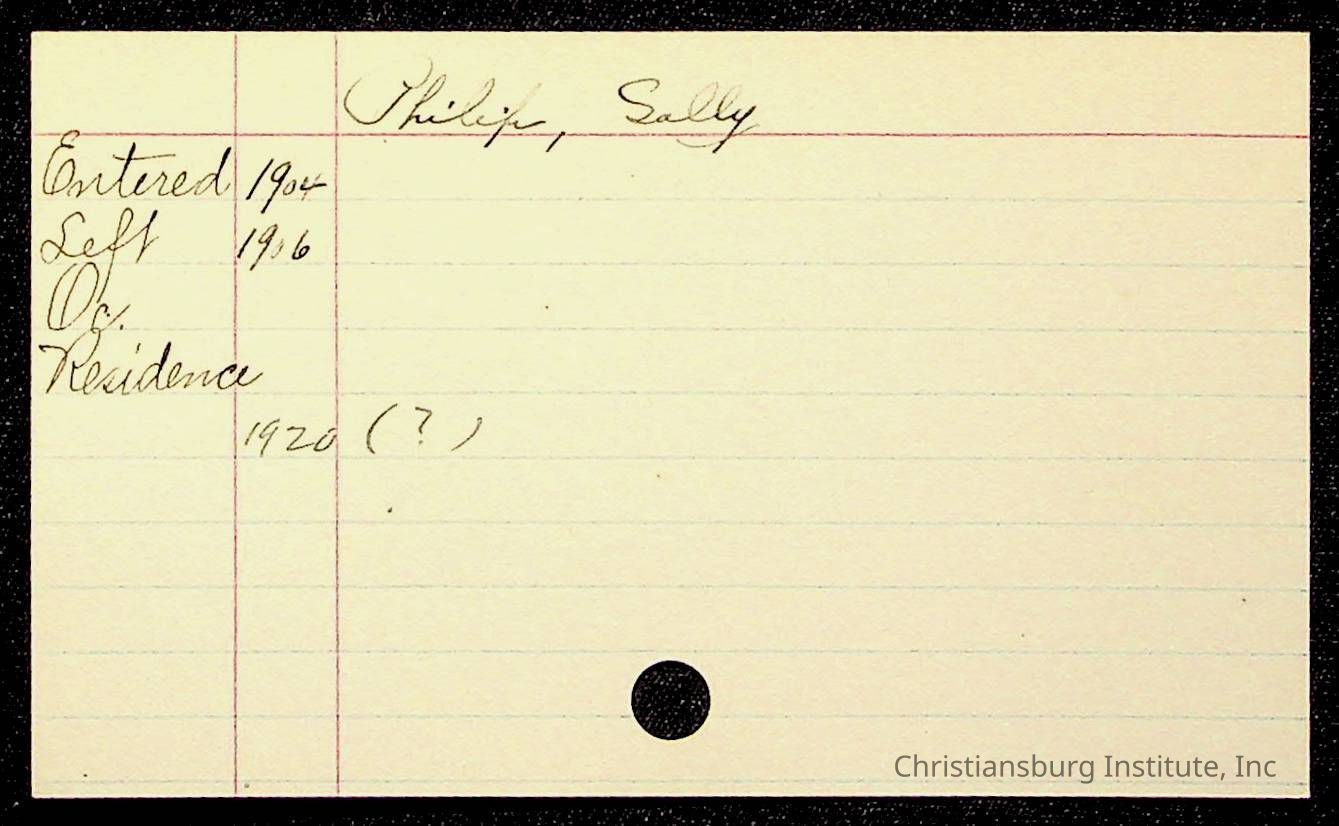 Philip, Sally
Entered 1904
Left 1906
Oc.
Residence
1920 (?)
Christiansburg Institute, Inc